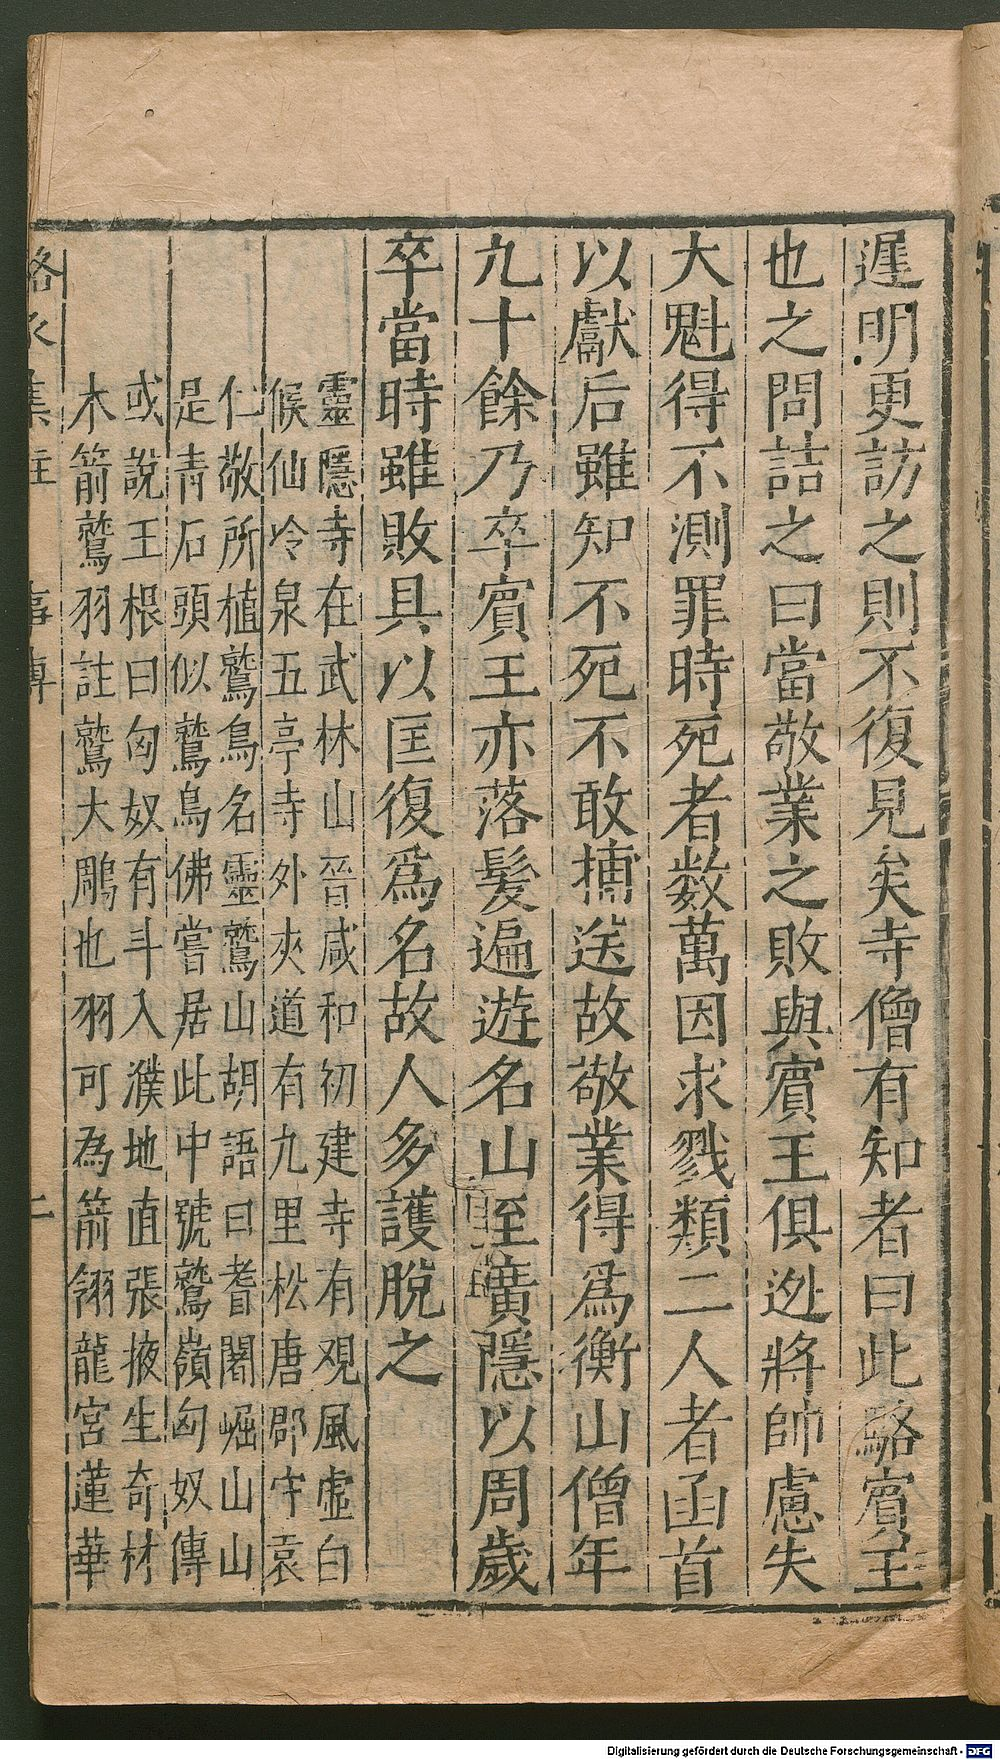 遲明更訪之則不復見矣寺僧有知者曰此駱賓王
也之問詰之曰當敬業之敗與賓王俱迯將帥慮失
大魁得不測罪時死者数萬因求戮類二人者函首
以獻后雖知不死不敢捕送故敬業得爲衡山僧年
九十餘乃卒賓王亦落髮遍遊名山至廣隱以周歲
卒當時雖敗具以匡復爲名故人多護脫之
靈隱寺在武林山晉咸和初建寺有观風虛白
候仙冷泉五亭寺外夾道有九里松唐郡守袁
仁敬所植鷲鳥名靈鷲山胡語曰耆闍崛山山
是青石頭似鷲鳥佛嘗居此中號鷲嶺匈奴傳
或說王根曰匈奴有斗入漢地直張掖生奇材
木箭鷲羽註鷲大鵰也羽可為箭翎龍宮蓮華
Digitalisierung gefördert durch die Deutsche Forschungsgemeinschaft - DFG